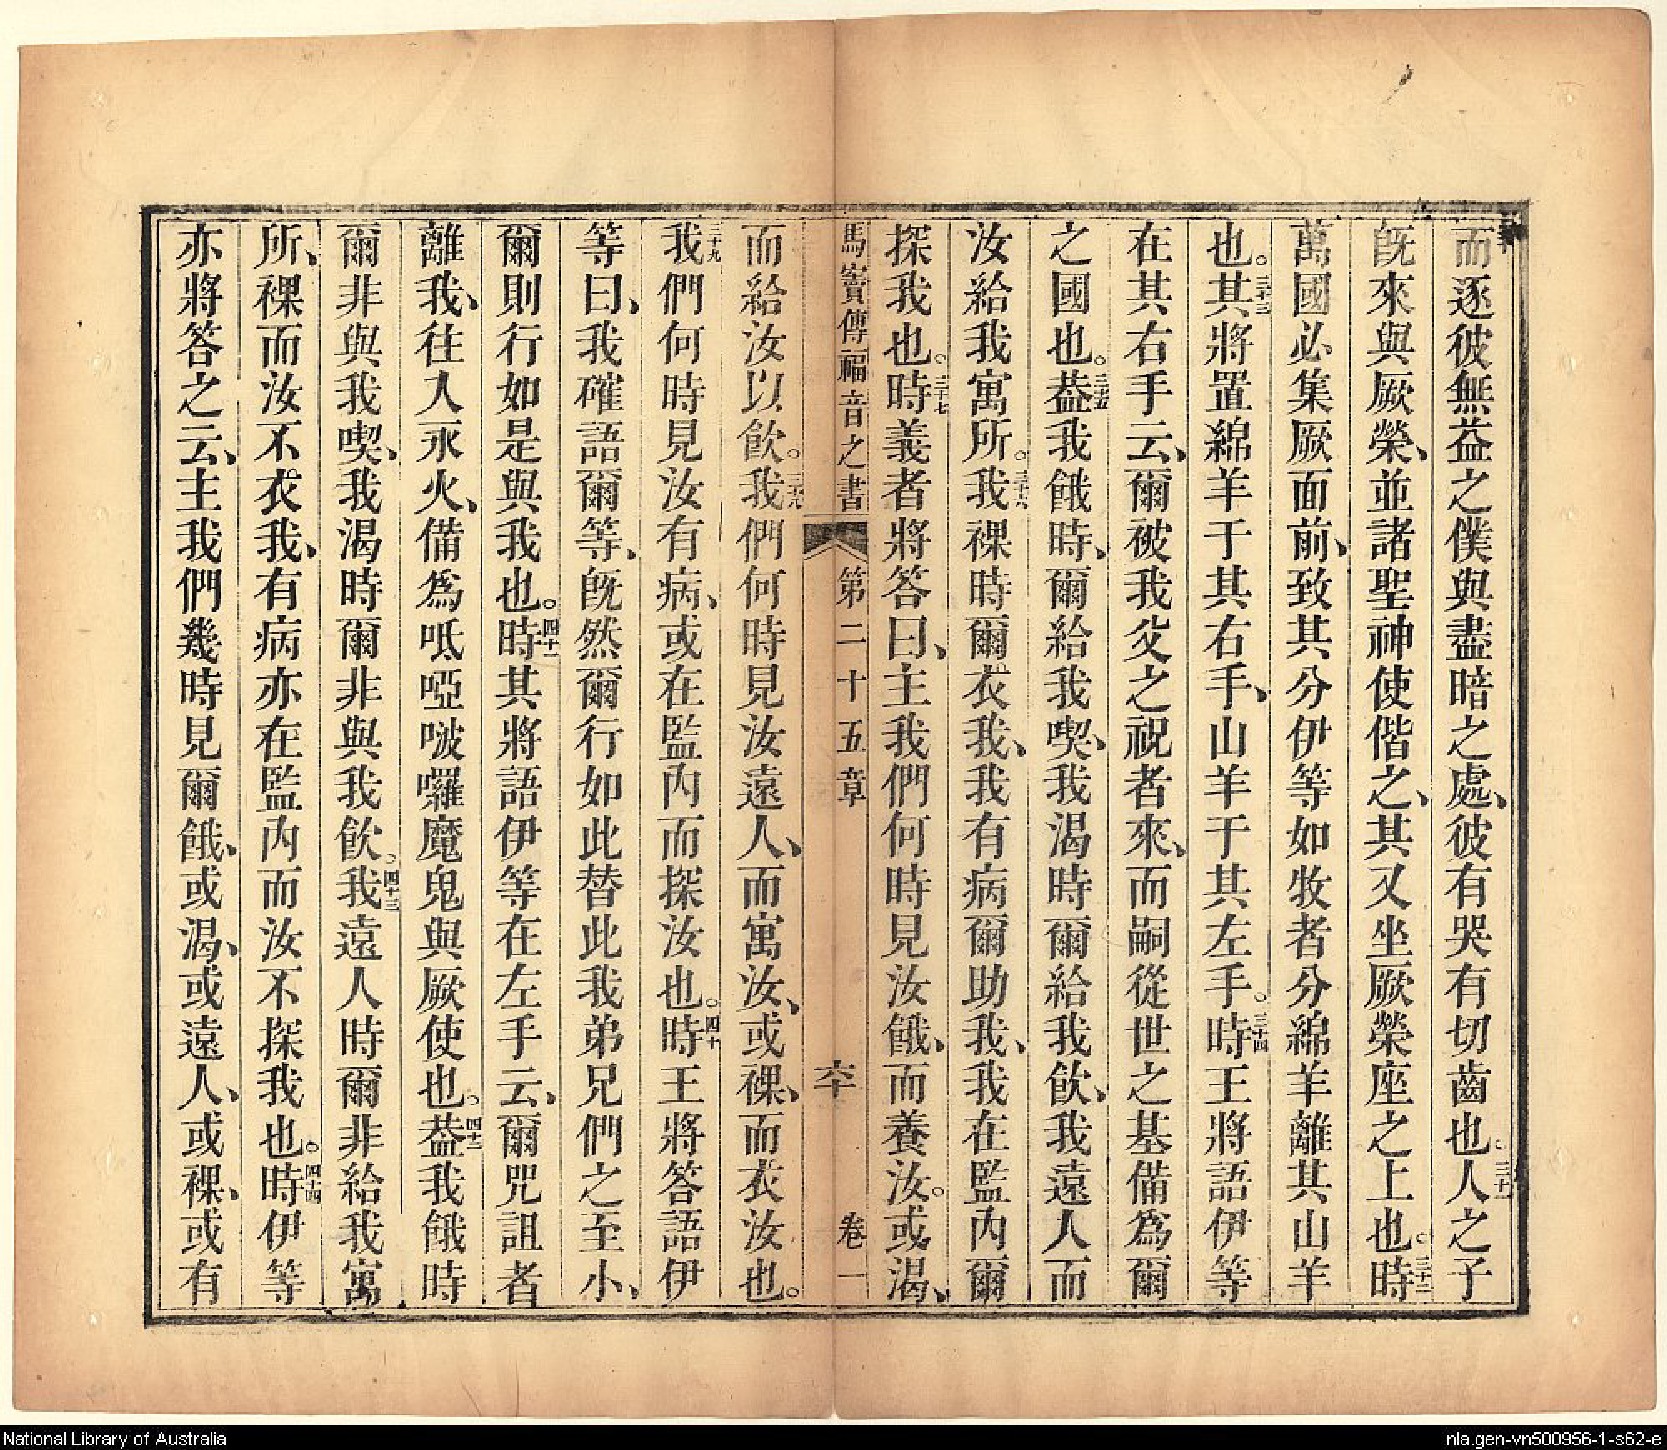 而逐彼無益之僕與盡暗之處、彼有哭有切齒也。三十一人之子
旣來與厥榮、並諸聖神使偕之、其又坐厥榮座之上也。三十二時
萬國必集厥面前、致其分伊等如牧者分綿羊離其山羊
也。三十三其將置綿羊于其右手、山羊于其左手。三十四時王將語伊等
在其右手云、爾被我父之祝者來、而嗣從世之基備爲爾
之國也。三十五葢我餓時、爾給我喫、我渴時爾給我飲、我遠人而
汝給我寓所。三十六我裸時爾衣我、我有病爾助我、我在監內爾
探我也。三十七時義者將答曰、主我們何時見汝餓、而養汝。或渴、
馬竇傳福音之書 第二十五章 卷一
而給汝以飲。三十八我們何時見汝遠人、而寓汝、或裸、而衣汝也。
三十九我們何時見汝有病、或在監內而探汝也。四十時王將答語伊
等曰、我確語爾等、旣然爾行如此替此我弟兄們之至小、
爾則行如是與我也。四十一時其將語伊等在左手云、爾咒詛者
離我、往入永火、備爲呧啞啵囉魔鬼與厥使也。四十二葢我餓時
爾非與我喫、我渴時爾非與我飲。四十三我遠人時爾非給我寓
所、裸而汝不衣我、有病亦在監內而汝不探我也。四十四時伊等
亦將答之云、主我們幾時見爾餓、或渴、或遠人、或裸、或有
National Library of Australia
nla.gen-vn500956-1-s62-e